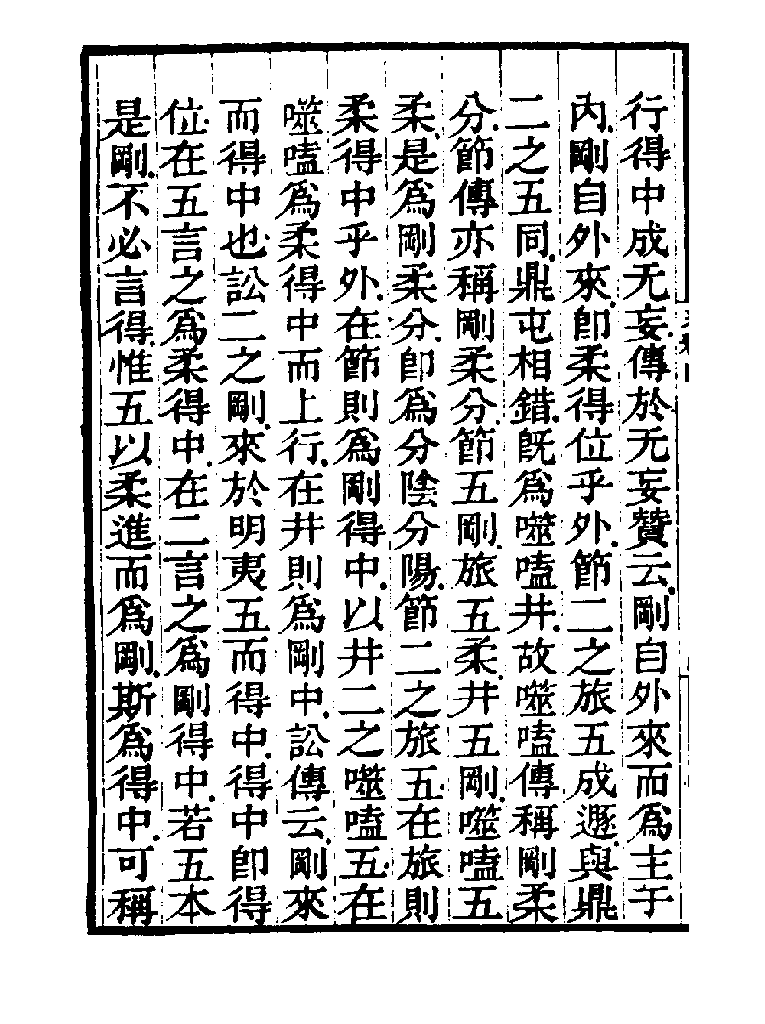 行得中成无妄傳於无妄贊云剛自外來而爲主于
內剛自外來卽柔得位乎外節二之旅五成遯與鼎
二之五同鼎屯相錯旣爲噬嗑井故噬嗑傳稱剛柔
分節傳亦稱剛柔分節五剛旅五柔井五剛噬嗑五
柔是爲剛柔分卽爲分陰分陽節二之旅五在旅則
柔得中乎外在節則爲剛得中以井二之噬嗑五在
噬嗑爲柔得中而上行在井則爲剛中訟傳云剛來
而得中也訟二之剛來於明夷五而得中得中卽得
位在五言之爲柔得中在二言之爲剛得中若五本
是剛不必言得惟五以柔進而爲剛斯爲得中可稱